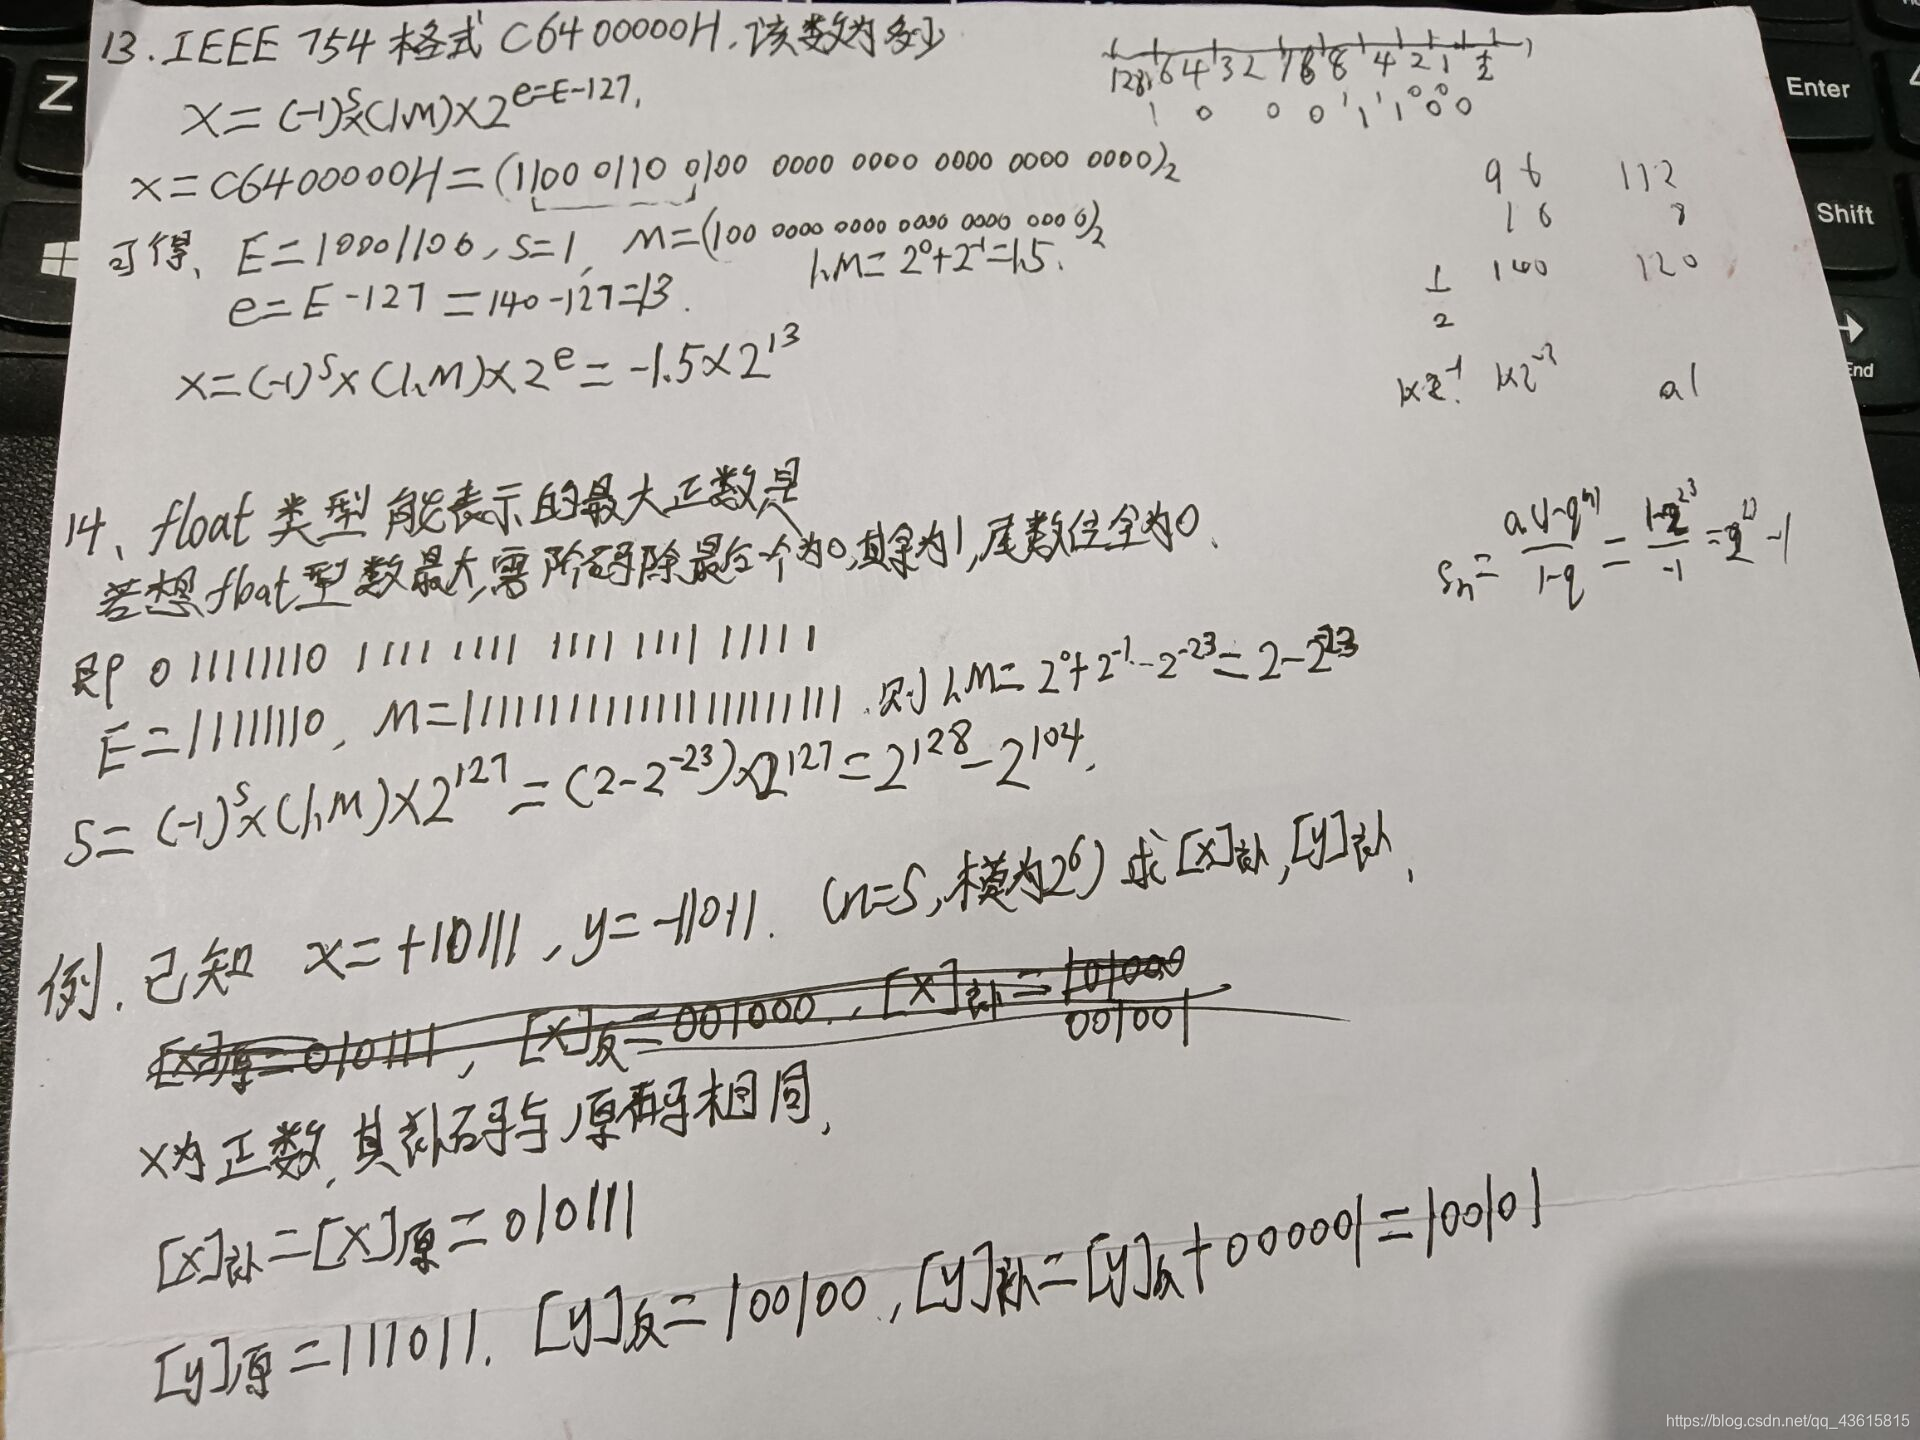 13.IEEE 754格式 C6400000H,该数为多少
X=(-1)^S×(1.M)×2^e=E-127.
X=C6400000H=(1100 0110 0100 0000 0000 0000 0000 0000)2
可得、E=10001100,S=1, M=(100 0000 0000 0000 0000 0000)2
1.M=2^0+2^-1=1.5.
e=E-127=140-127=13.
X=(-1)^S×(1.M)×2^e=-1.5×2^13
128 64 32 16 8 4 2 1
96 112
16 8
1/2 140 120
1×2^-1 1×2^-2 a1
14、float类型能表示的最大正数是
若想float型数最大,需阶码除最后个为0,其余为1,尾数位全为0.
Sn=a(1-q^n)/1-q=1-2^23/-1=2^23-1
即 0 11111110 1111 1111 1111 1111 11111
E=11111110, M=11111111111111111111111.则1.M=2^0+2^-1--2^-23=2-2^-23
S=(-1)^S×(1.M)×2^127=(2-2^-23)×2^127=2^128-2^104.
例.已知 X=+10111,y=-11011. (n=5,模为2^6) 求[X]补,[y]补.
[X]原=010111, [X]反=001000.,[X]补=101000
001001
X为正数,其补码与原码相同,
[X]补=[X]原=010111
[y]原=111011. [y]反=100100,[y]补=[y]反+000001=100101
Z
Enter
Shift
End
https://blog.csdn.net/qq_43615815